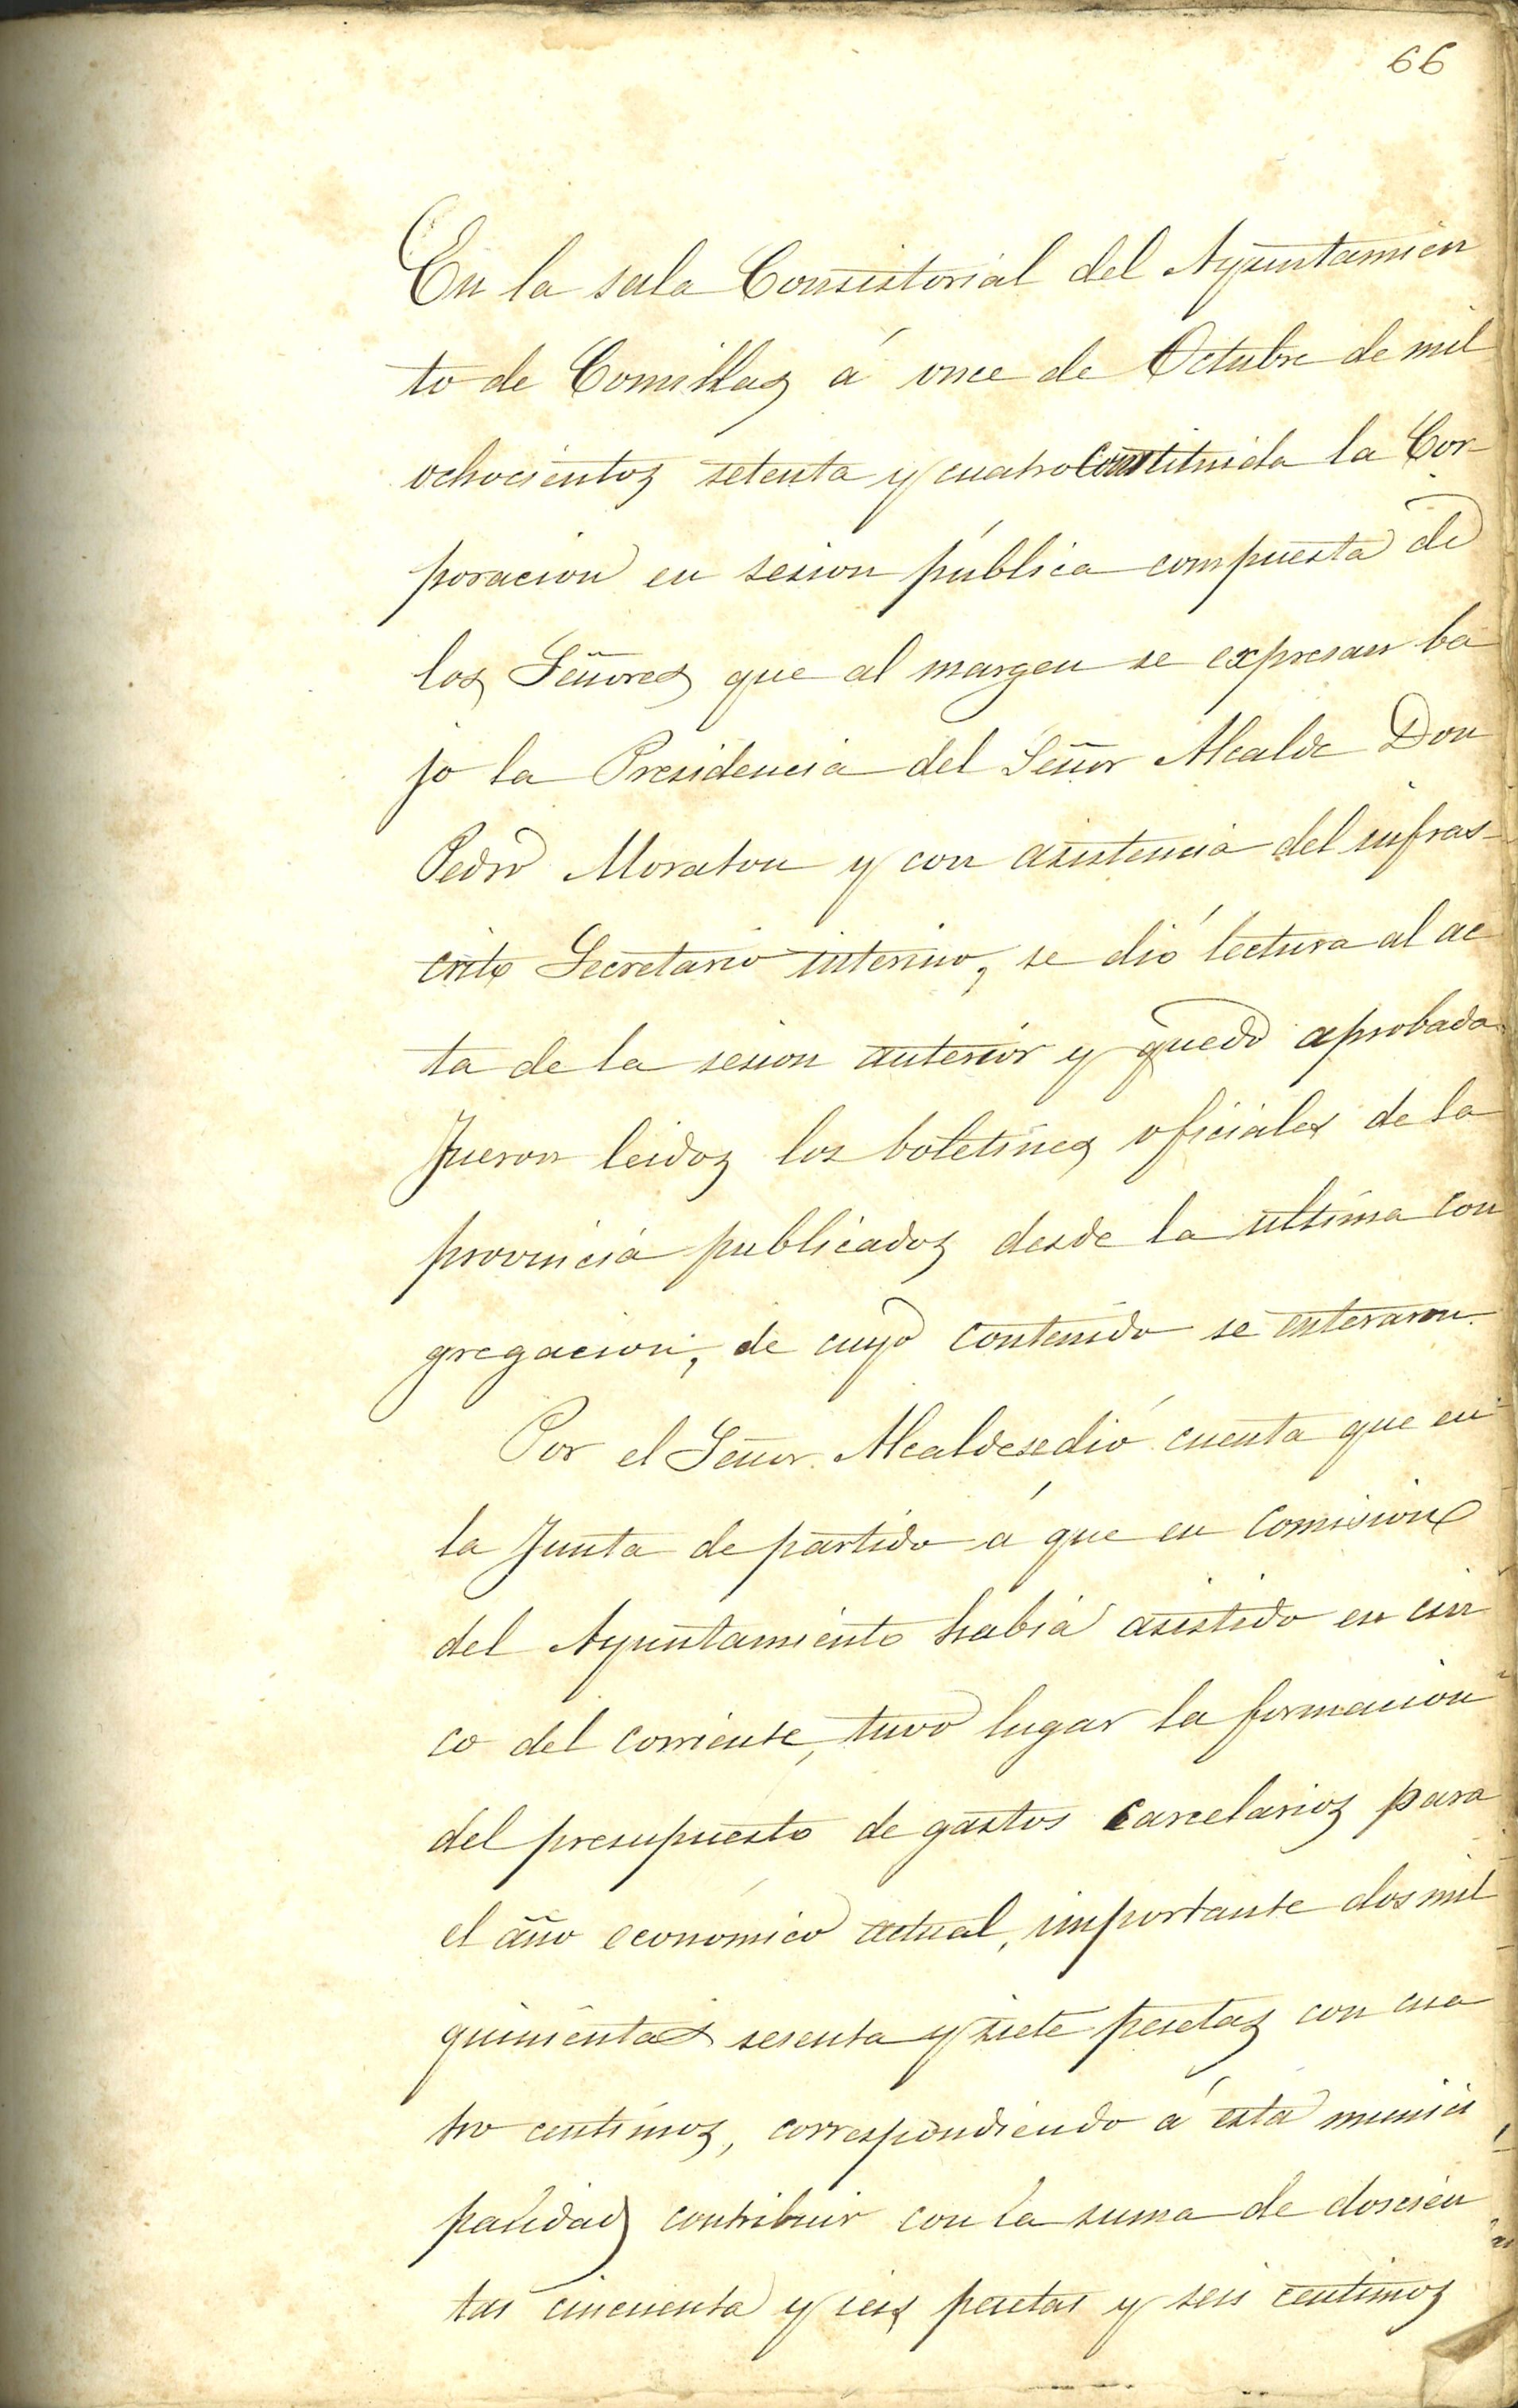 66
En la sala Consistorial del Ayuntamien
to de Comillas á once de Octubre de mil
ochocientos setenta y cuatro Constituida la Cor-
poracion en sesion pública compuesta de
los Señores que al margen se expresan ba
jo la Presidencia del Señor Alcalde Don
Pedro Moraton y con asistencia del infras-
crito Secretario interino, se dió lectura al ac
ta de la sesion anterior y quedó aprobada.
Fueron leidos los boletines oficiales de la
provincia publicados desde la ultima con
gregacion, de cuyo contenido se enteraron.
Por el Señor Alcalde se dió cuenta que en
la Junta de partido á que en comision
del Ayuntamiento habia asistido en cin
co del corriente, tuvo lugar la formacion
del presupuesto de gastos carcelarios para
el año económico actual, importante dos mil
quinientas sesenta y siete pesetas con cua
tro centimos, correspondiendo á esta munici
palidad contribuir con la suma de doscien
tas cincuenta y seis pesetas y seis centimos